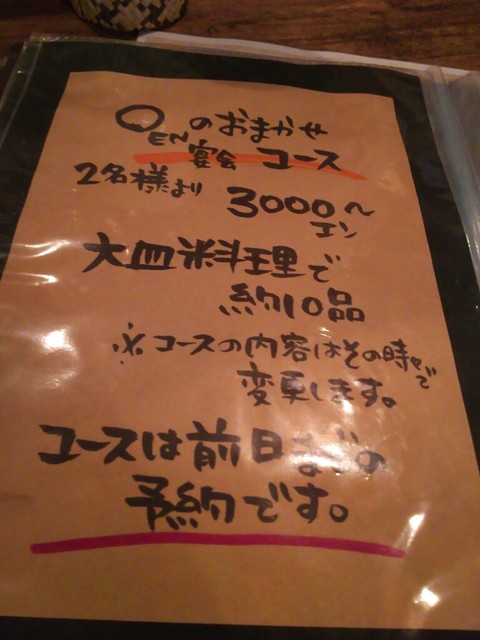 〇のおまかせ
EN
宴会コース
2名様より
3000〜
エン
大皿料理で
約10品
※コースの内容はその時々で
変更します。
コースは前日までの
予約です。